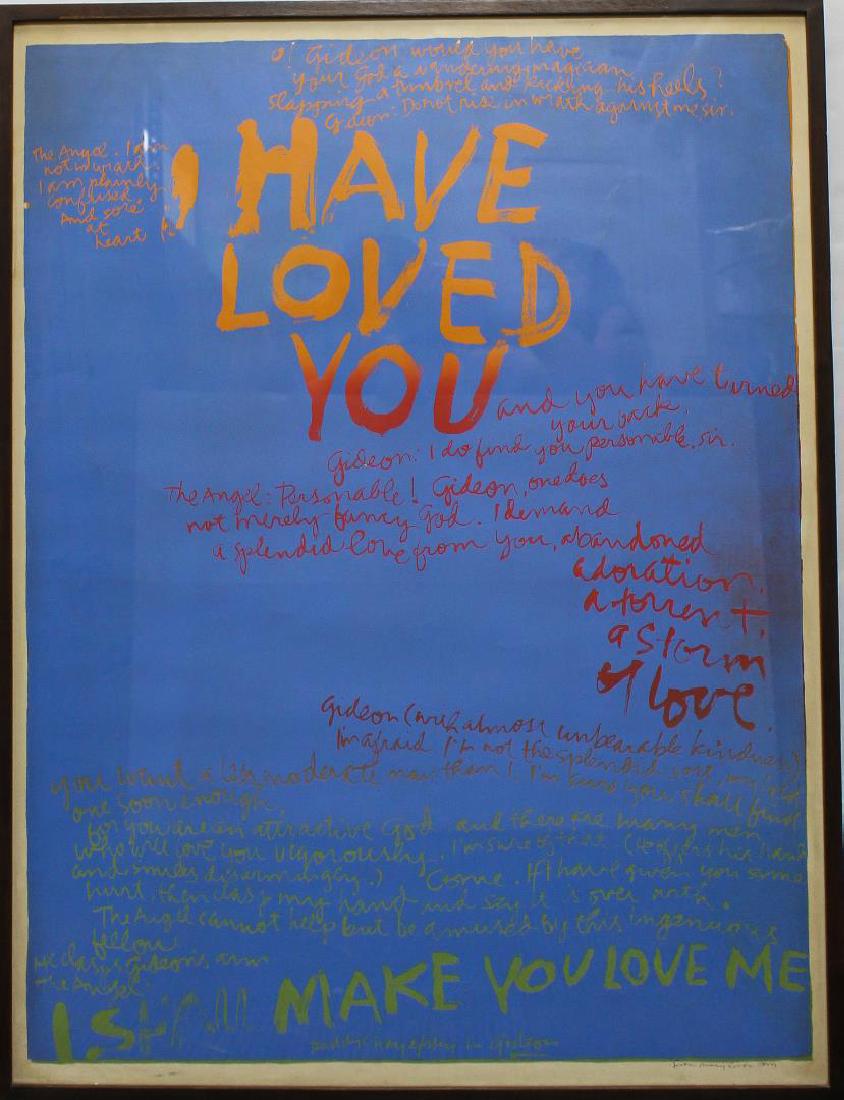 O! Gideon would you have
your God a wandering magician
slapping a timbrel and kicking his heels?
Gideon: Do not rise in wrath against me sir.
The Angel. I am
not in wrath.
I am plainly
confused.
And sore
at
heart
I HAVE
LOVED
YOU
and you have turned
your back.
Gideon: I do find you personable, sir.
The Angel: Personable! Gideon, one does
not merely fancy God. I demand
a splendid love from you, abandoned
adoration,
a torrent,
a storm
of love.
Gideon (with almost unbearable kindness)
I'm afraid I'm not the splendid sort, my Lord
you want a less moderate man then I. I'm sure you shall find
one soon enough,
for you are an attractive God and there are many men
who will love you vigorously. I'm sure of that. (He offers his hand
and smiles disarmingly.) Come. If I have given you some
hurt, then clasp my hand and say it is over with.
The Angel cannot help but be amused by this ingenuous
fellow.
He clasps Gideon's arm
The Angel:
I SHALL MAKE YOU LOVE ME
paddy chayefsky in Gideon